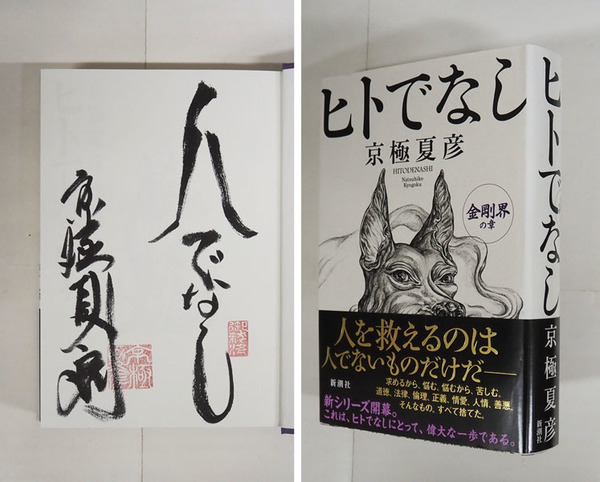 人でなし
京極夏彦
京極
ヒトでなし
京極夏彦
HITODENASHI
Natsuhiko
Kyogoku
金剛界
の章
人を救えるのは
人でないものだけだ――
求めるから、悩む。悩むから、苦しむ。
道徳、法律、倫理、正義、情愛、人情、善悪。
そんなもの、すべて捨てた。
新潮社
新シリーズ開幕。
これは、ヒトでなしにとって、偉大な一歩である。
ヒトでなし
京極夏彦
新潮社